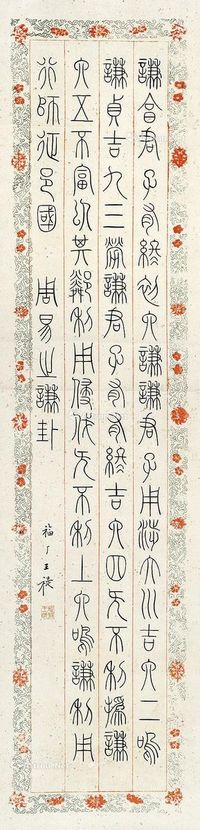 謙亨君子有終初六謙謙君子用涉大川吉六二鳴
謙貞吉九三勞謙君子有終吉六四无不利撝謙
六五不富以其鄰利用侵伐无不利上六鳴謙利用
行師征邑國 周易之謙卦
福厂王禔